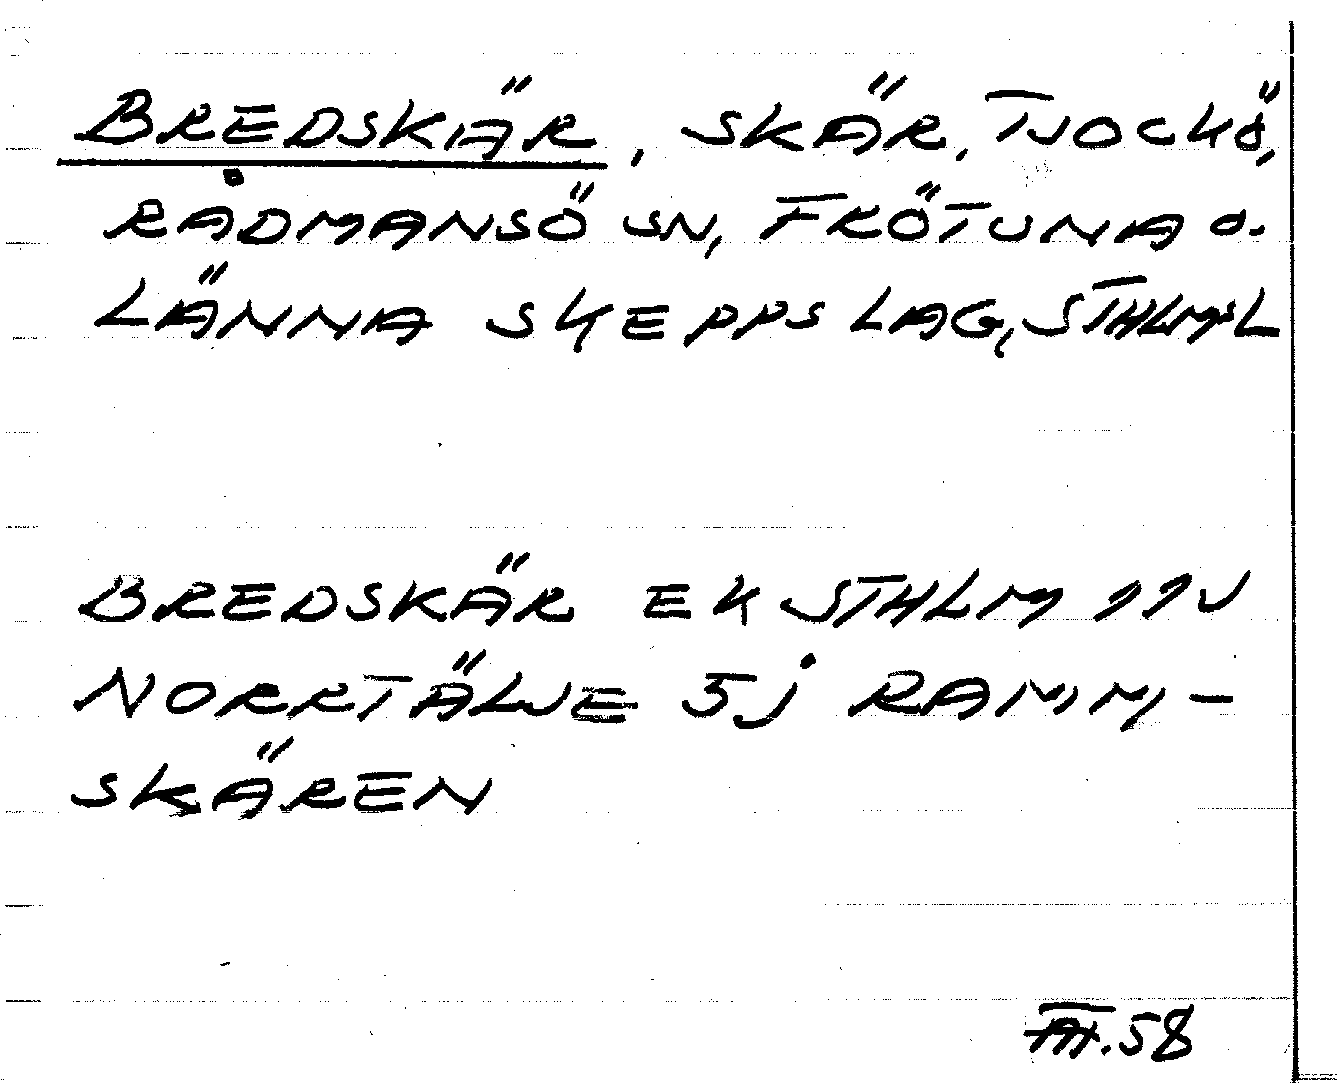 BREDSKÄR, SKÄR, TJOCKÖ,
RÅDMANSÖ SN, FRÖTUNA O.
LÄNNA SKEPPSLAG, STHLMSL
BREDSKÄR EK STHLM 11J
NORRTÄLJE 5j RAMM-
SKÄREN
.58